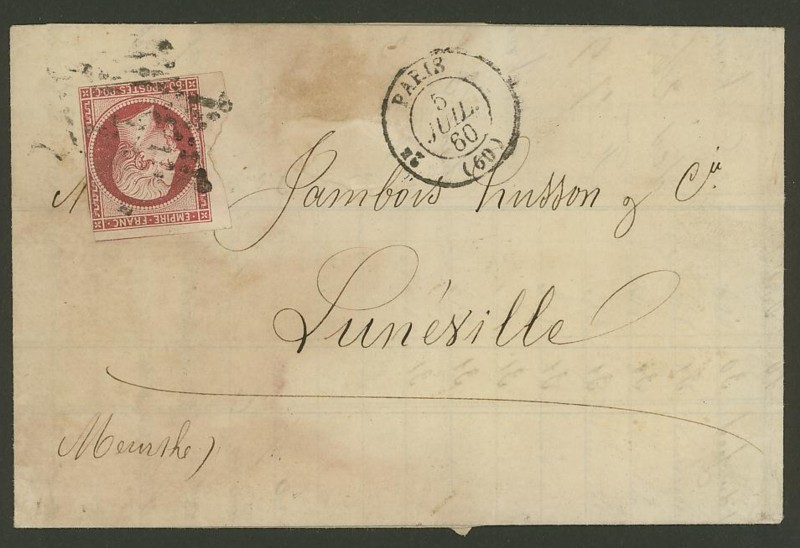 PARIS
5
JUIL.
60
(60)
2E
POSTES
EMPIRE FRANC
M
Jambois Husson & Cie
Lunéville
Meurthe)